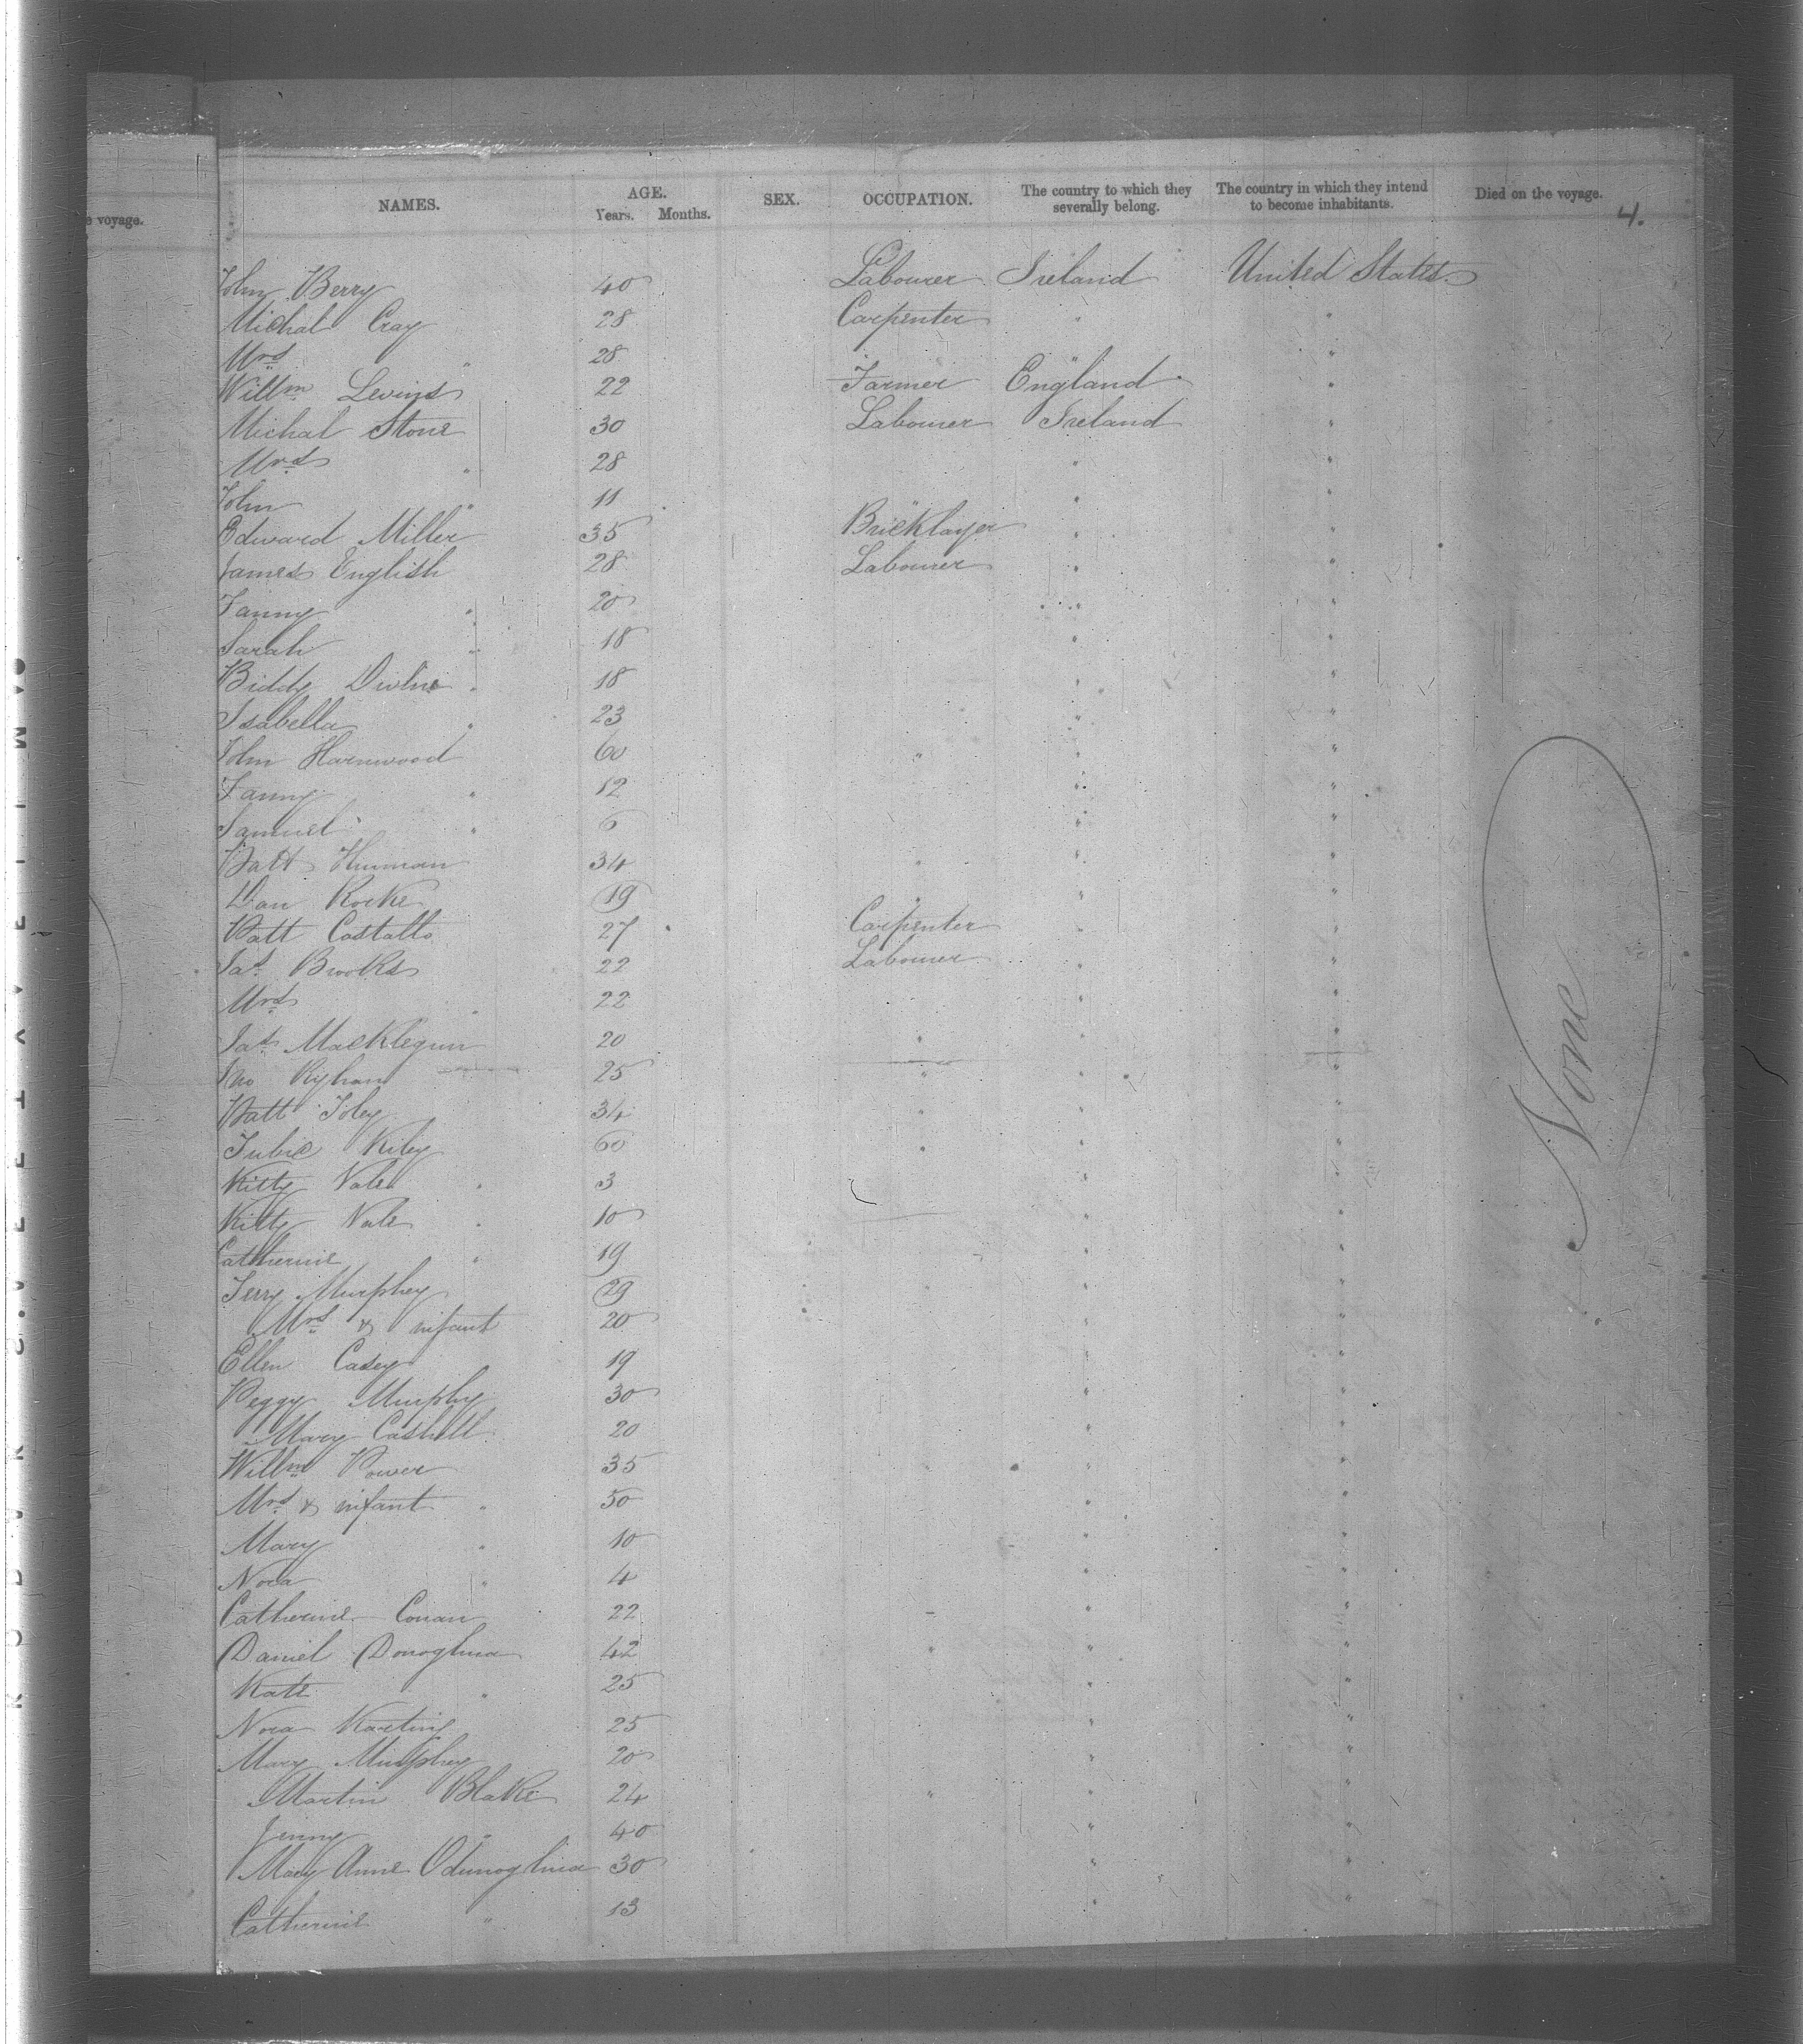 e voyage.
NAMES. AGE. Years. Months. SEX. OCCUPATION. The country to which they severally belong. The country in which they intend to become inhabitants. Died on the voyage. 4.
John Berry 40 Labourer Ireland United States
Michal Cray 28 Carpenter " "
Mrs " 28 " " "
Willm Levins 22 Farmer England "
Michal Stone 30 Labourer Ireland "
Mrs " 28 " "
John " 11 " " "
Edward Miller 35 Bricklayer " "
James English 28 Labourer " "
Fanny " 20 " "
Sarah " 18 " "
Biddy " 18 " "
Isabella " 23 " "
John Harnwood 60 " " "
Fanny " 12 " "
Samuel " 6 " "
Patt 34 " " "
Dan Rorke 19 " " "
Patt Costallo 27 Carpenter " "
Jas Brooks 22 Labourer " "
Mrs " 22 " "
Jas 20 " " "
Jno 25 " " "
Patt Foley 34 " " "
Kiley 60 " " "
Kitty Nale " 3 " "
Kitty Nale " 10 " "
Catherine " 19 " "
Jerry Murphey 29 " " "
Mrs & infant 20 " "
Ellen Casey 19 " "
Peggy Murphy 30 " "
Mary 20 " "
Willm Power 35 " " "
Mrs & infant " 50 " "
Mary " 10 " "
Nora " 4 " "
Catherine Conan 22 " "
Daniel Donoghua 42 " " "
Kate " 25 " "
Nora 25 " "
Mary Murphey 20 " "
Martin Blake 24 " " "
Jenny " 40 " "
Mary Anne Odunoghua 30 " "
Catherine " 13 " "
None